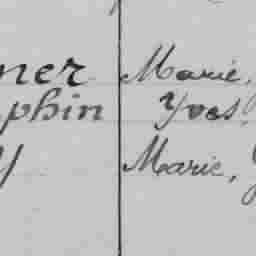 ner Marie,
phin Yves,
y Marie,